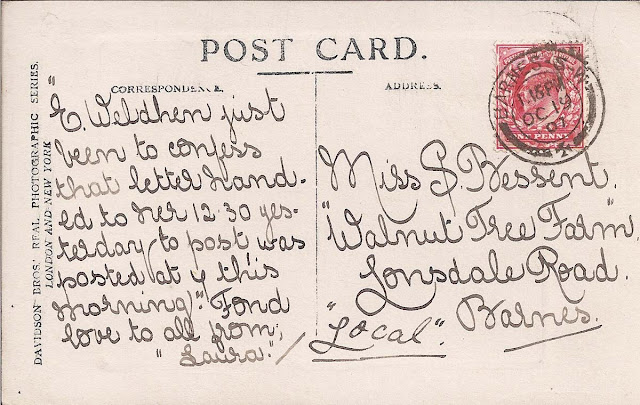 POST CARD.
CORRESPONDENCE.
ADDRESS.
DAVIDSON BROS.' REAL PHOTOGRAPHIC SERIES.
LONDON AND NEW YORK
"E. Weldhen just
been to confess
that letter hand-
ed to her 12.30 yes-
terday to post, was
posted at 9 this
morning". Fond
love to all from,
"Laura."
Miss S. Bessent.
"Walnut Tree Farm",
Lonsdale Road.
Barnes.
"Local".
BARNES S.W.
1.15 PM
OC 19
07
ONE PENNY